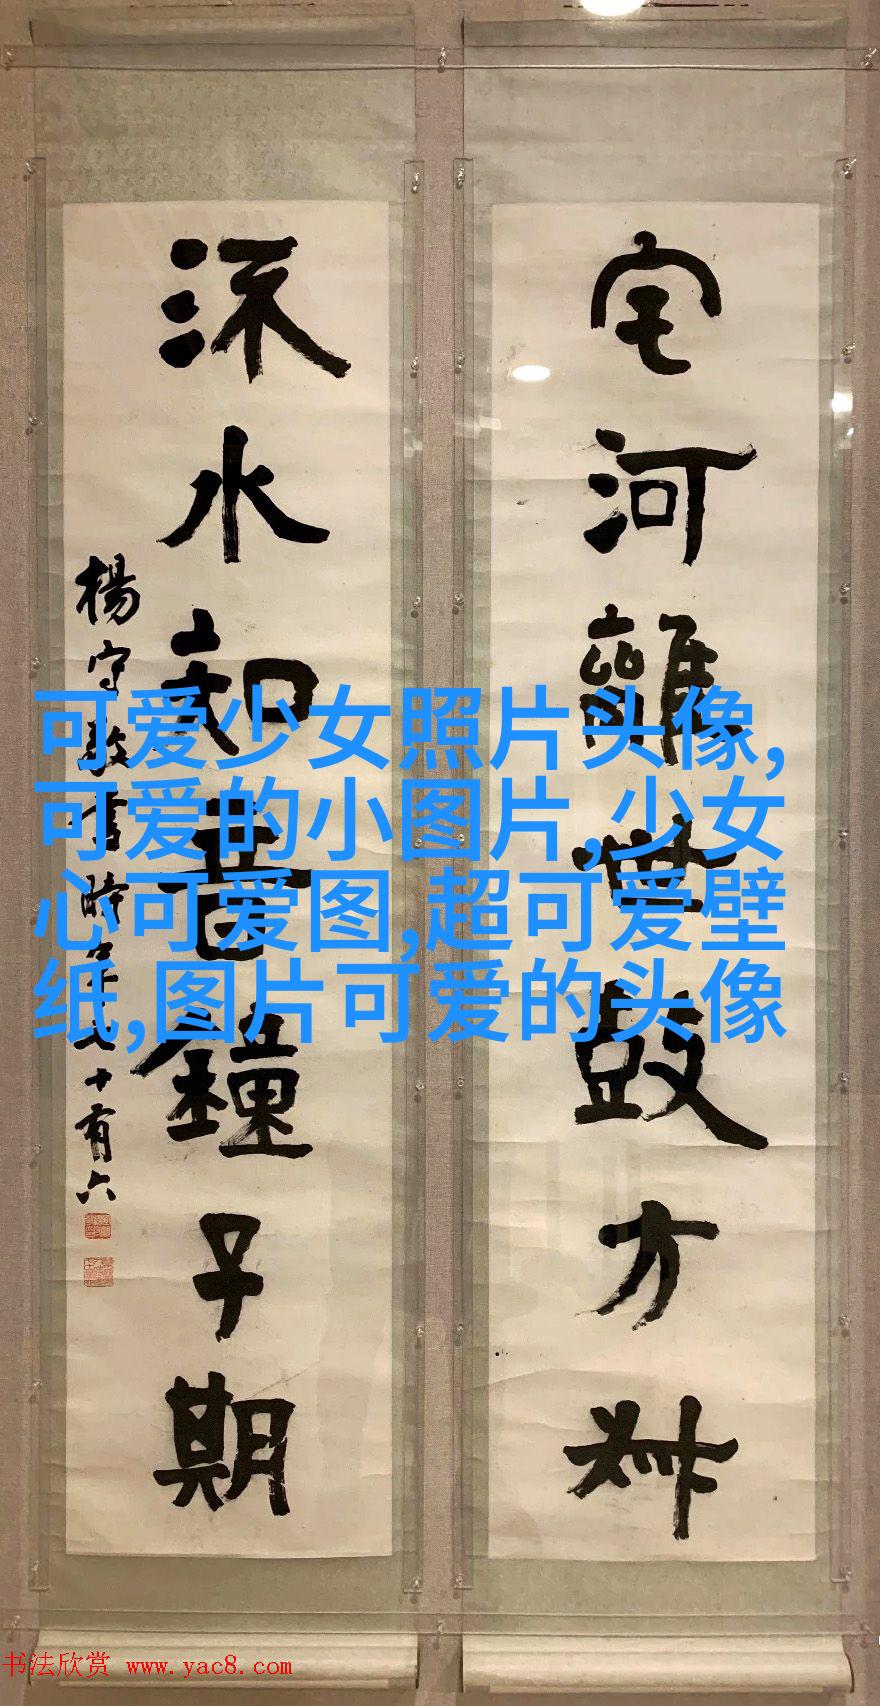 宅河世鼓方
水知音鐘子期
楊守敬書時年七十有六
可爱少女照片头像,
可爱的小图片,少女
心可爱图,超可爱壁
纸,图片可爱的头像
书法欣赏 www.yac8.com